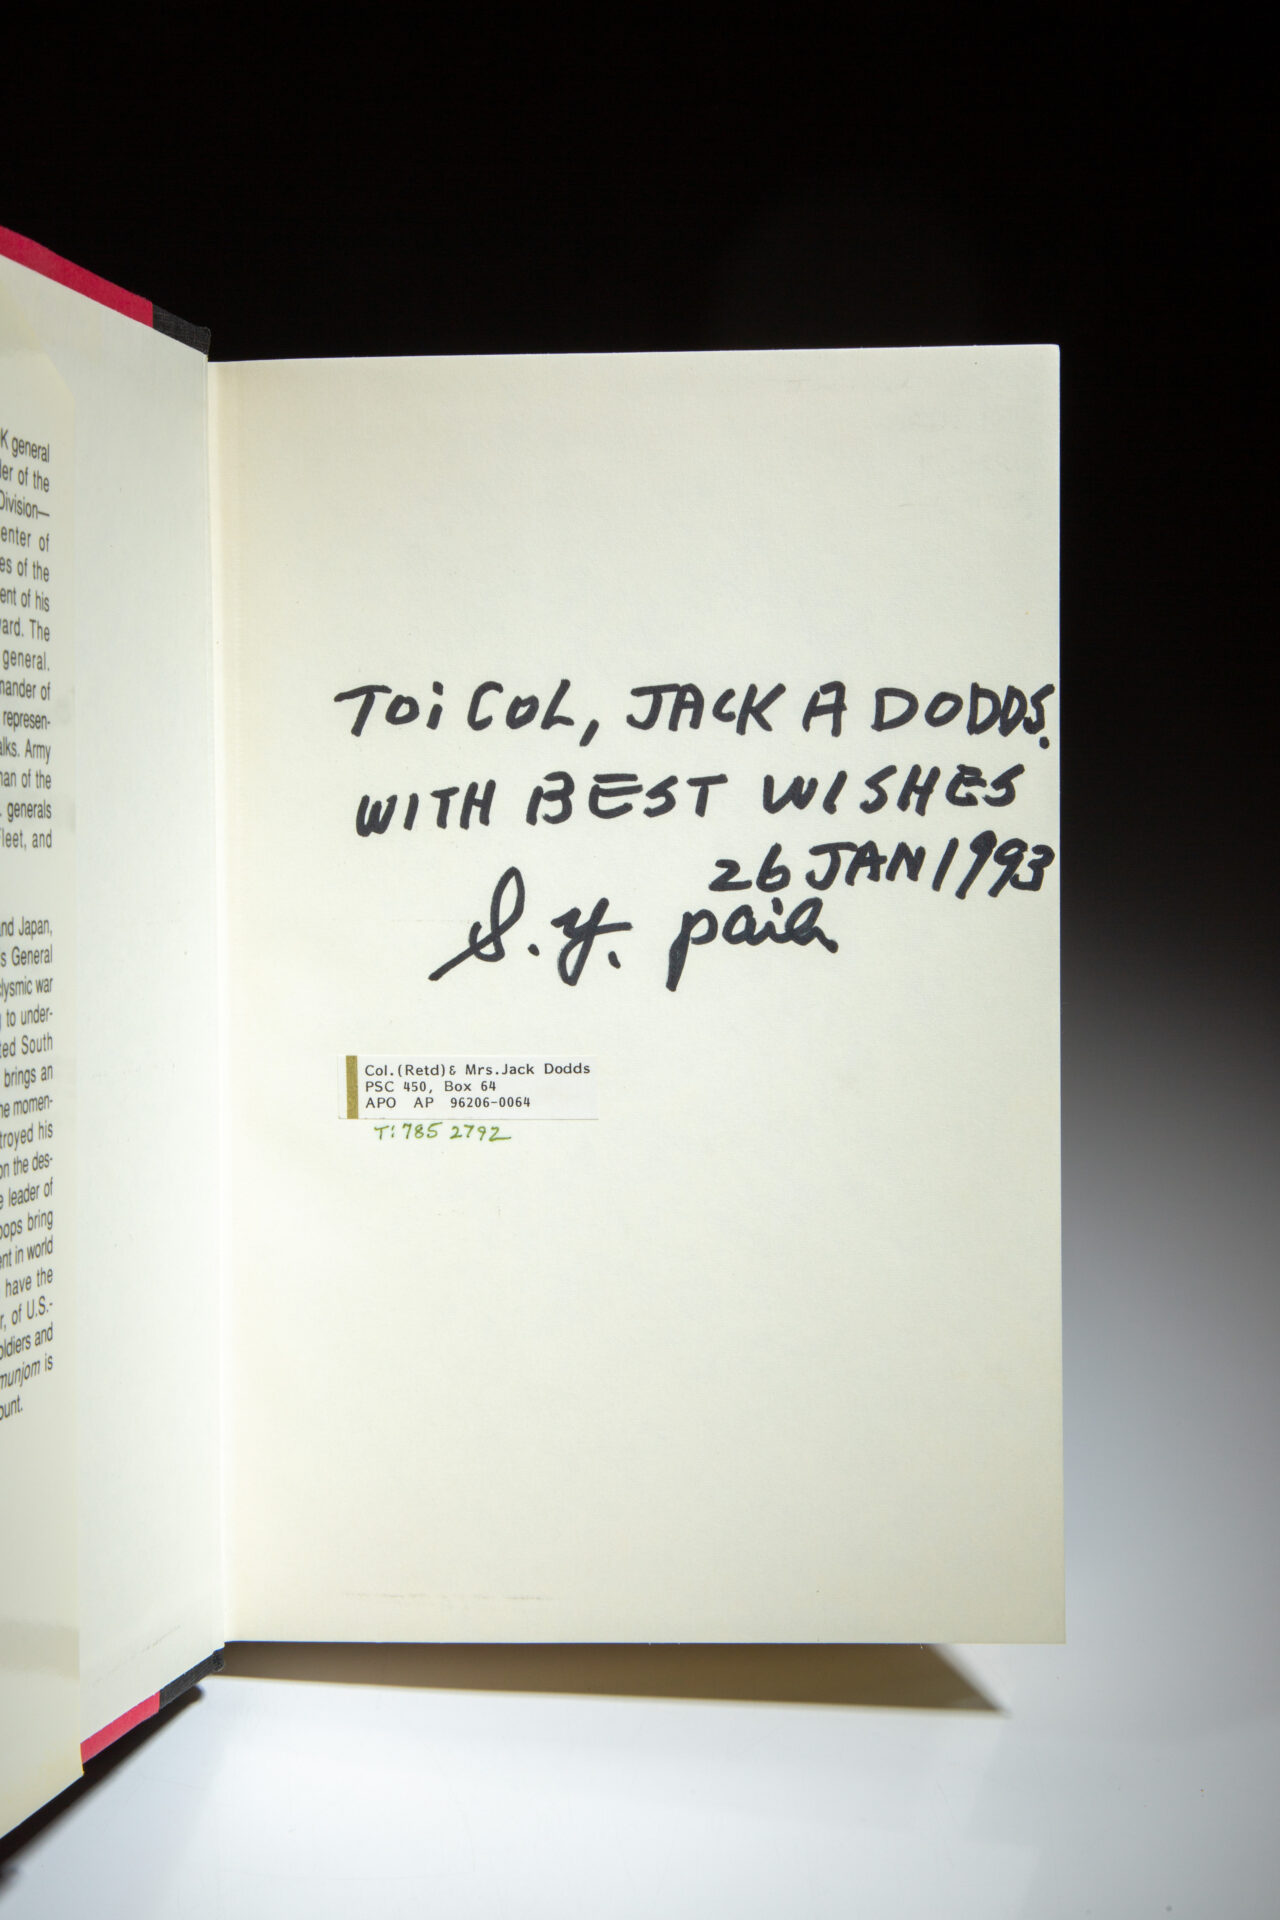 K general
er of the
Division—
enter of
es of the
ent of his
ard. The
general.
mander of
represen-
alks. Army
man of the
. generals
Fleet, and
nd Japan,
s General
lysmic war
to under-
ted South
brings an
he momen-
troyed his
on the des-
e leader of
oops bring
ent in world
have the
r, of U.S.-
oldiers and
munjom is
ount.
Toi COL, JACK A DODDS.
WITH BEST WISHES
26 JAN 1993
S. Y. paik
Col.(Retd)& Mrs.Jack Dodds
PSC 450, Box 64
APO AP 96206-0064
T: 785 2792